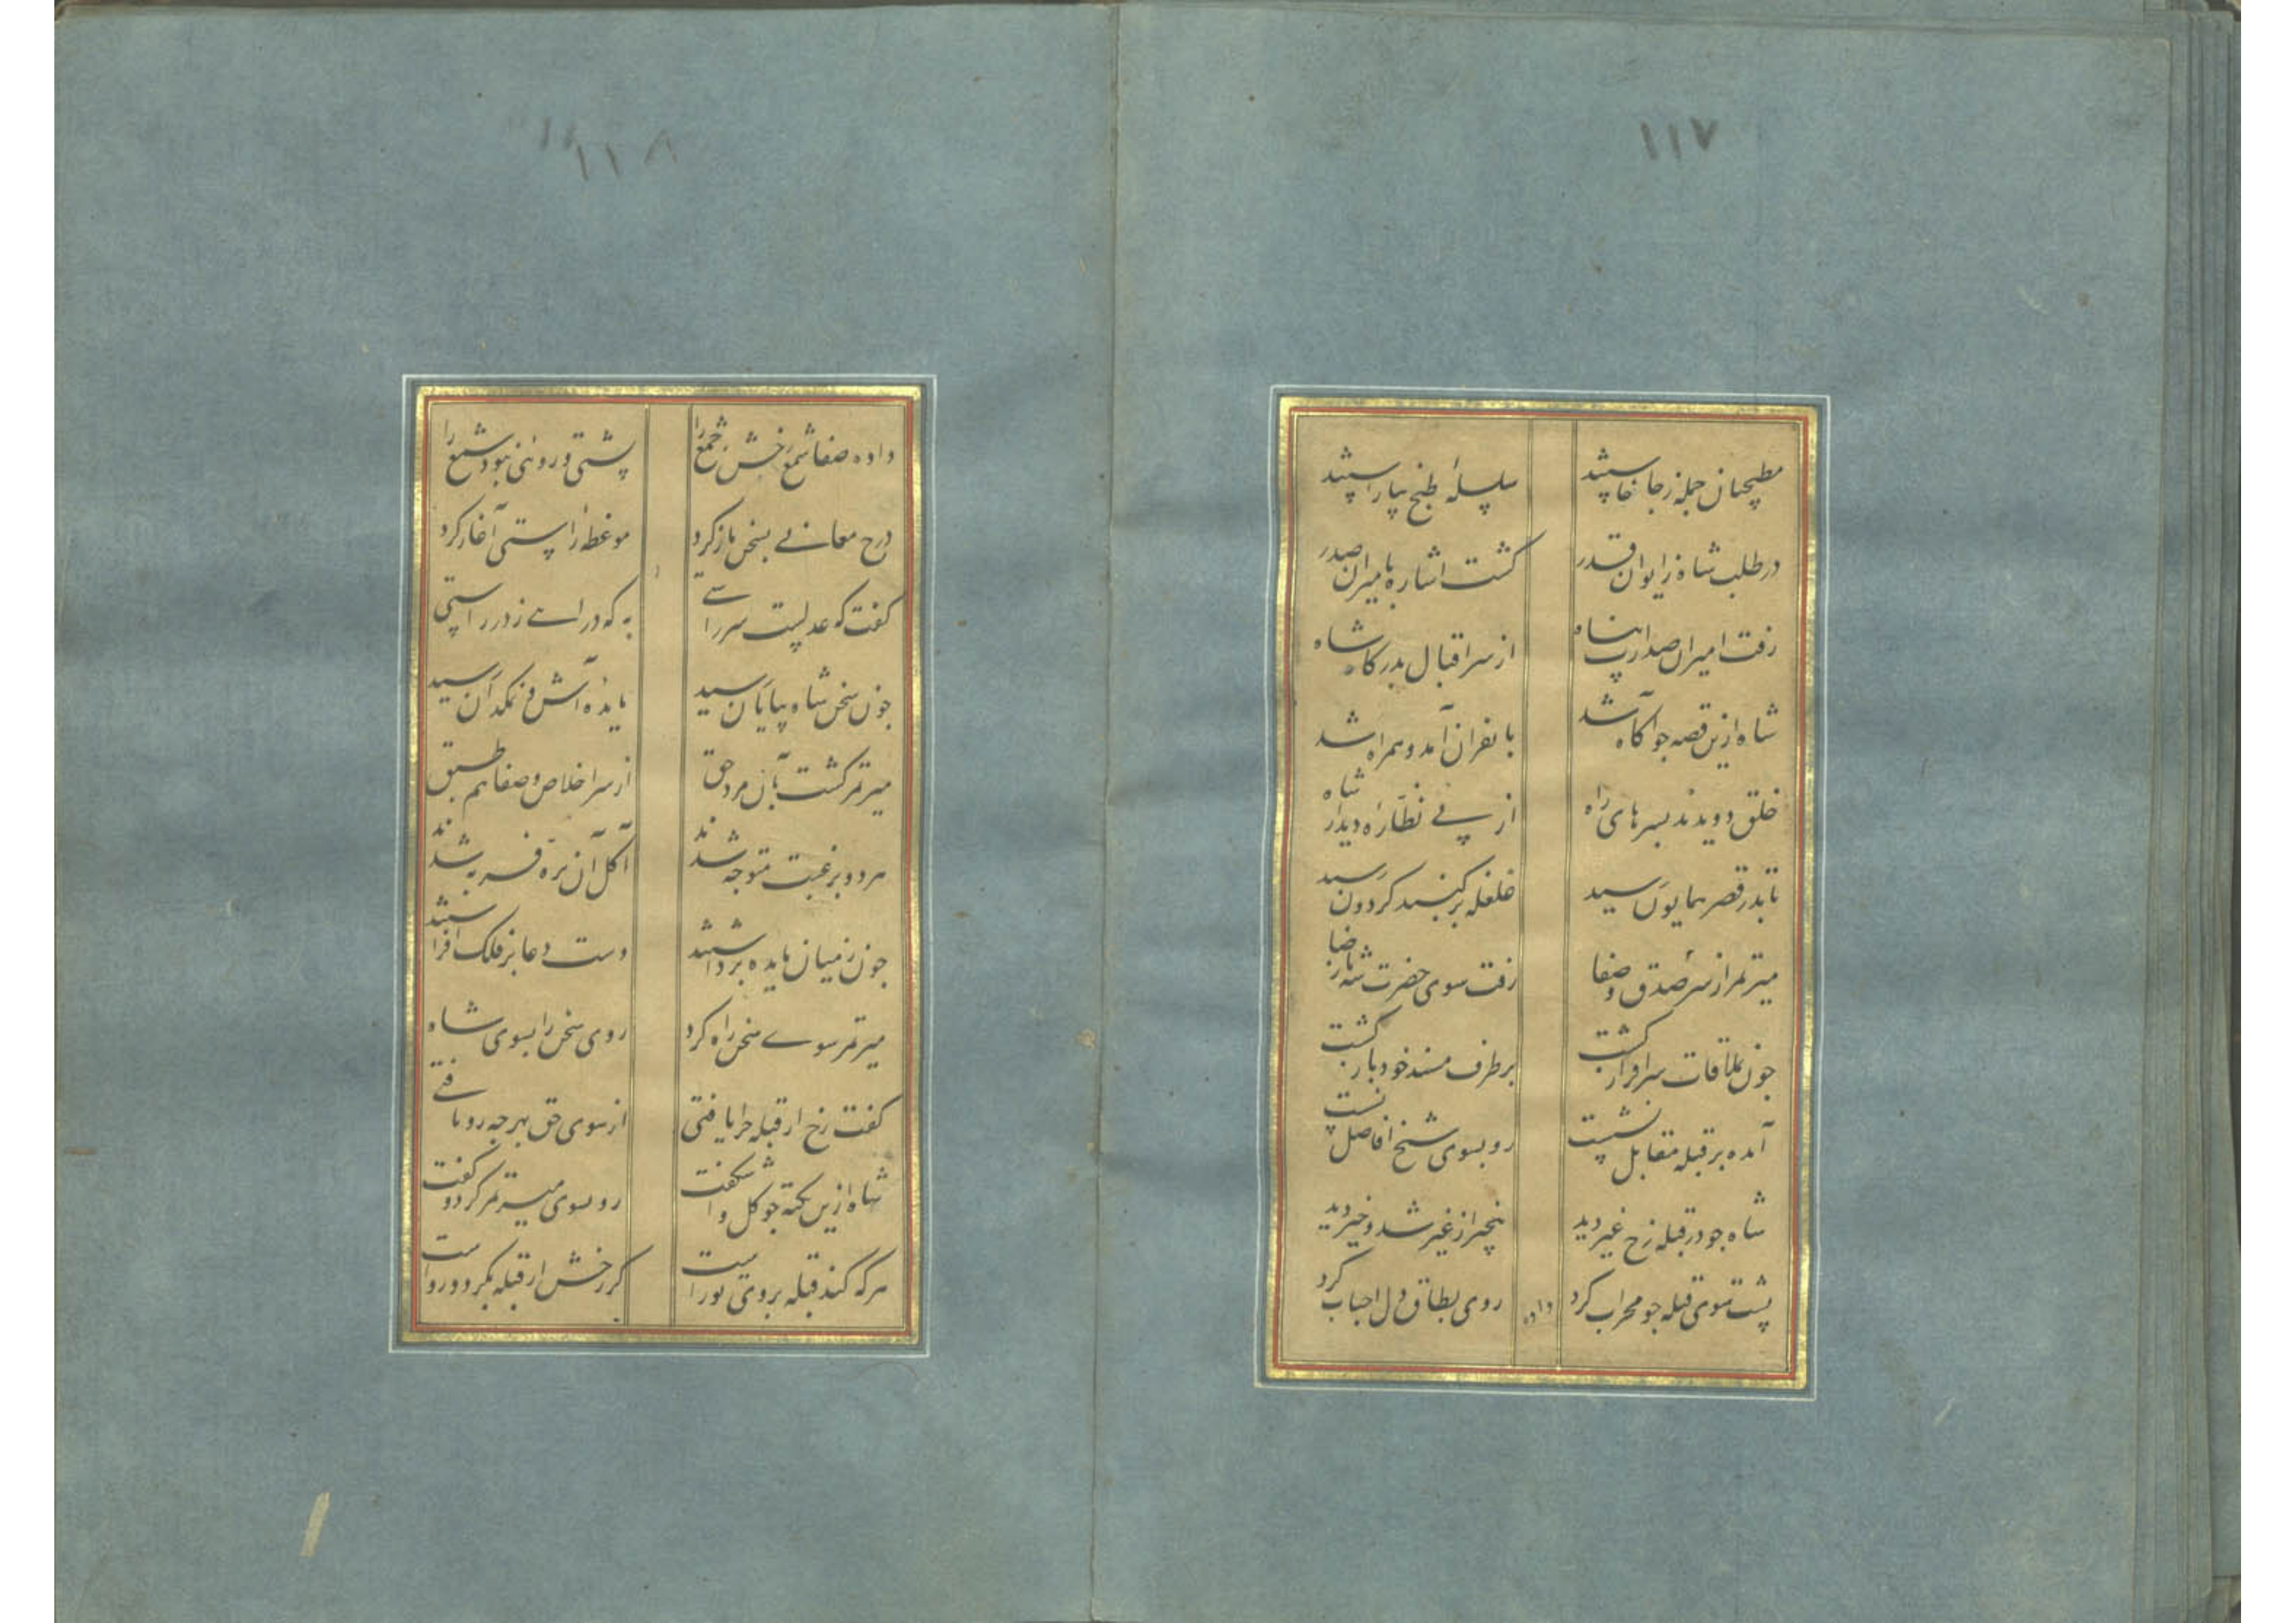 ۱۱۷
مطبخیان جمله ز جا خاستند سلسلهٔ طبخ بیاراستند
در طلب شاه ز ایوان قدر گشت اشاره بامیران صدر
رفت امیران صدارت پناه از سر اقبال بدرگاه شاه
شاه ازین قصه جو آگاه شد با نفران آمد و همراه شد
خلق دویدند بسرهای راه از پی نظاره دیدار شاه
تا بدر قصر همایون رسید غلغله بر گنبد گردون رسید
میر تمر از سر صدق و صفا رفت سوی حضرت شه با رضا
جون بملاقات سرافراز گشت بر طرف مسند خود باز گشت
آمده بر قبله مقابل نشست رو بسوی شیخ افاضل نشست
شاه جو در قبله رخ غیر دید از غیر شد و خیر دید
پشت سوی قبله جو محراب کرد روی بطاق دل احباب کرد
داده
۱۱۸
داده صفا شمع رخش جمع را پشتی و رویی نبود شمع را
درج معانی بسخن باز کرد موعظه راستی آغاز کرد
گفت که عدلیست سرراستی به که درآیی ز در راستی
جون سخن شاه بپایان رسید مایده آش و نمکدان رسید
میر تمر گشت بآن مرد حق از سر اخلاص و صفا هم طبق
هر دو برغبت متوجه شدند آکل آن بره فربه شدند
جون ز میان مایده برداشتند دست دعا بر فلک افراشتند
میر تمر سوی سخن راه کرد روی سخن را بسوی شاه
گفت رخ از قبله جرا یافتی از سوی حق بهر جه رو یافتی
شاه ازین نکته جو گل وا شکفت رو بسوی میر تمر کرد و گفت
هر که کند قبله بروی تو راست گر رخش از قبله بگردد رواست